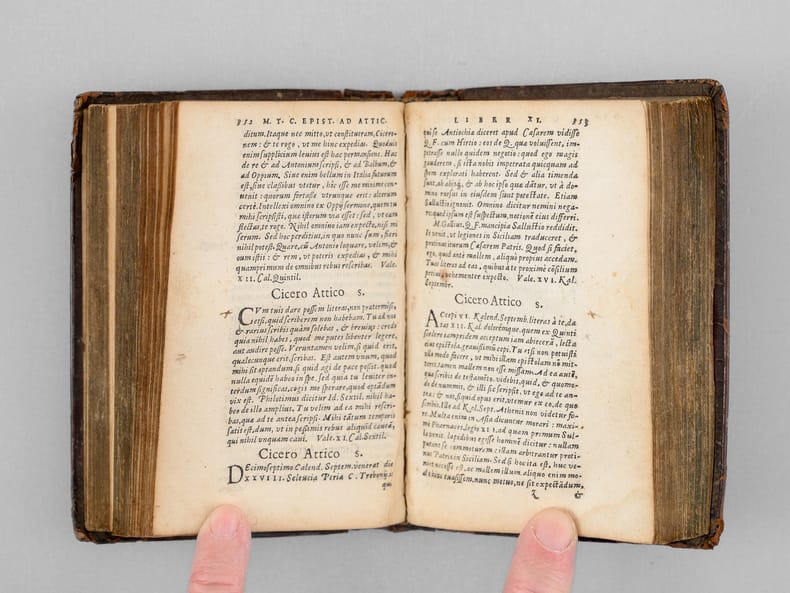 352 M. T. C. EPIST. AD ATTIC.
ditum. Itaque nec mitto, vt constitueram, Cicero-
nem: & te rogo, vt me hinc expedias. Quoduis
enim supplicium leuius est hac permansione. Hac
de re & ad Antonium scripsi, & ad Balbum, &
ad Oppium. Siue enim bellum in Italia futurum
est, siue classibus vtetur, hic esse me minime con-
uenit: quorum fortasse vtrunque erit: alterum
certè. Intellexi omnino ex Oppij sermone, quem tu
mihi scripsisti, quæ istorum via esset: sed, vt eam
flectas, te rogo. Nihil omnino iam expecto, nisi mi
serum. Sed hoc perditius, in quo nunc sum, fieri
nihil potest. Quare, cū Antonio loquare, velim, &
cum istis: & rem, vt poteris expedias, & mihi
quamprimum de omnibus rebus rescribas. Vale.
XII. Cal. Quintil.
Cicero Attico s.
CVm tuis dare possem literas, non prætermisi,
etsi, quid scriberem non habebam. Tu ad nos
& rarius scribis quàm solebas, & breuius: credo
quia nihil habes, quod me putes libenter legere,
aut audire posse. Veruntamen velim, si quid erit,
qualecunque erit, scribas. Est autem vnum, quod
mihi sit optandum, si quid agi de pace possit. quod
nulla equidē habeo in spe. sed quia tu leuiter in-
terdum significas, cogis me sperare, quod optādum
vix est. Philotimus dicitur Id. Sextil. nihil ha-
beo de illo amplius. Tu velim ad ea mihi rescri-
bas, quæ ad te antea scripsi. Mihi tātum temporis
satis est, dum, vt in pessimis rebus aliquid caueā,
qui nihil vnquam caui. Vale. XI. Cal. Sextil.
Cicero Attico s.
DEcimoseptimo Calend. Septem. venerat die
XXVIII. Seleucia Pieria C. Trebonij:
qui
LIBER XI. 353
qui se Antiochiæ diceret apud Cæsarem vidisse
Q. F. cum Hirtio: eos de Q. quæ voluissent, im-
petrasse nullo quidem negotio: quod ego magis
gauderem, si ista nobis impetrata quicquam ad
spem explorati haberent. Sed & alia timenda
sunt, ab alijsq́;, & ab hoc ipso quæ dātur, vt à do-
mino rursus in eiusdem sunt potestate. Etiam
Sallustio ignouit. Omnino dicitur nemini nega-
re: quod ipsum est suspectum, notionē eius differri.
M. Gallius, Q. F. mancipia Sallustio reddidit.
Is venit, vt legiones in Siciliam traduceret, &
protinus iturum Cæsarem Patris. Quod si faciet,
ego, quod antè mallem, aliquò propius accedam.
Tuas literas ad eas, quibus à te proximè cōsilium
petiui, vehementer expecto. Vale. XVI. Kal.
Septembr.
Cicero Attico s.
ACcepi VI. Kalend. Septemb. literas à te, da-
tas XII. Kal. dolorémque, quem ex Quinti
scelere iampridem acceptum iam abieceram, lecta
eius epistola, grauissimū cepi. Tu etsi non potuisti
vllo modo facere, vt mihi illam epistolam nō mit-
teres, tamen mallem non esse missam. Ad ea autē,
quæ scribis de testamēto, videbis, quid, & quomo-
do. de nummis, & illa sic scripsit, vt ego ad te an-
tea: & nos, si quid opus erit, vtemur ex eo, de quo
scribis. Ille ad Kal. Sept. Athenis non videtur fo-
re. Multa eum in Asia dicuntur morari: maxi-
mè Pharnaces. legio XII. ad quam primum Sul-
la venit, lapidibus egisse hominē dicitur: nullam
putant se commoturam: illum arbitrantur proti-
nus Patris in Siciliam. Sed si hoc ita est, huc ve-
niat necesse est, ac mallem illum. aliquo enim mo-
do hinc euasissem. nunc metuo, ne sit expectādum,
Z &